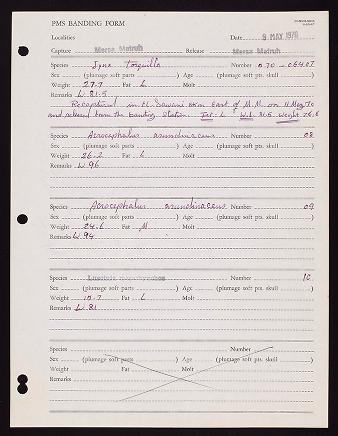 PMS BANDING FORM
Localities Date 9 MAY 1970
Capture Mersa Matruh Release Mersa Matruh
Species Jynx torquilla Number 070-06407
Sex (plumage soft parts ) Age (plumage soft pts. skull )
Weight 27.7 Fat L Molt
Remarks W 81.5
Recaptured in El 5km East of M.M. on 11 May 70
and released from the banding station. Fat: L W.L. 81.5 Weight 26.6
Species Acrocephalus arundinaceus Number 08
Sex (plumage soft parts ) Age (plumage soft pts. skull )
Weight 26.2 Fat L Molt
Remarks W 96
Species Acrocephalus arundinaceus Number 09
Sex (plumage soft parts ) Age (plumage soft pts. skull )
Weight 24.6 Fat M Molt
Remarks W 94
Species Luscinia megarhynchos Number 10
Sex (plumage soft parts ) Age (plumage soft pts. skull )
Weight 18.7 Fat L Molt
Remarks W 81
Species Number
Sex (plumage soft parts ) Age (plumage soft pts. skull )
Weight Fat Molt
Remarks